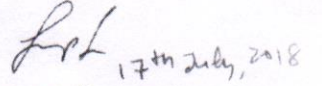 17th July, 2018